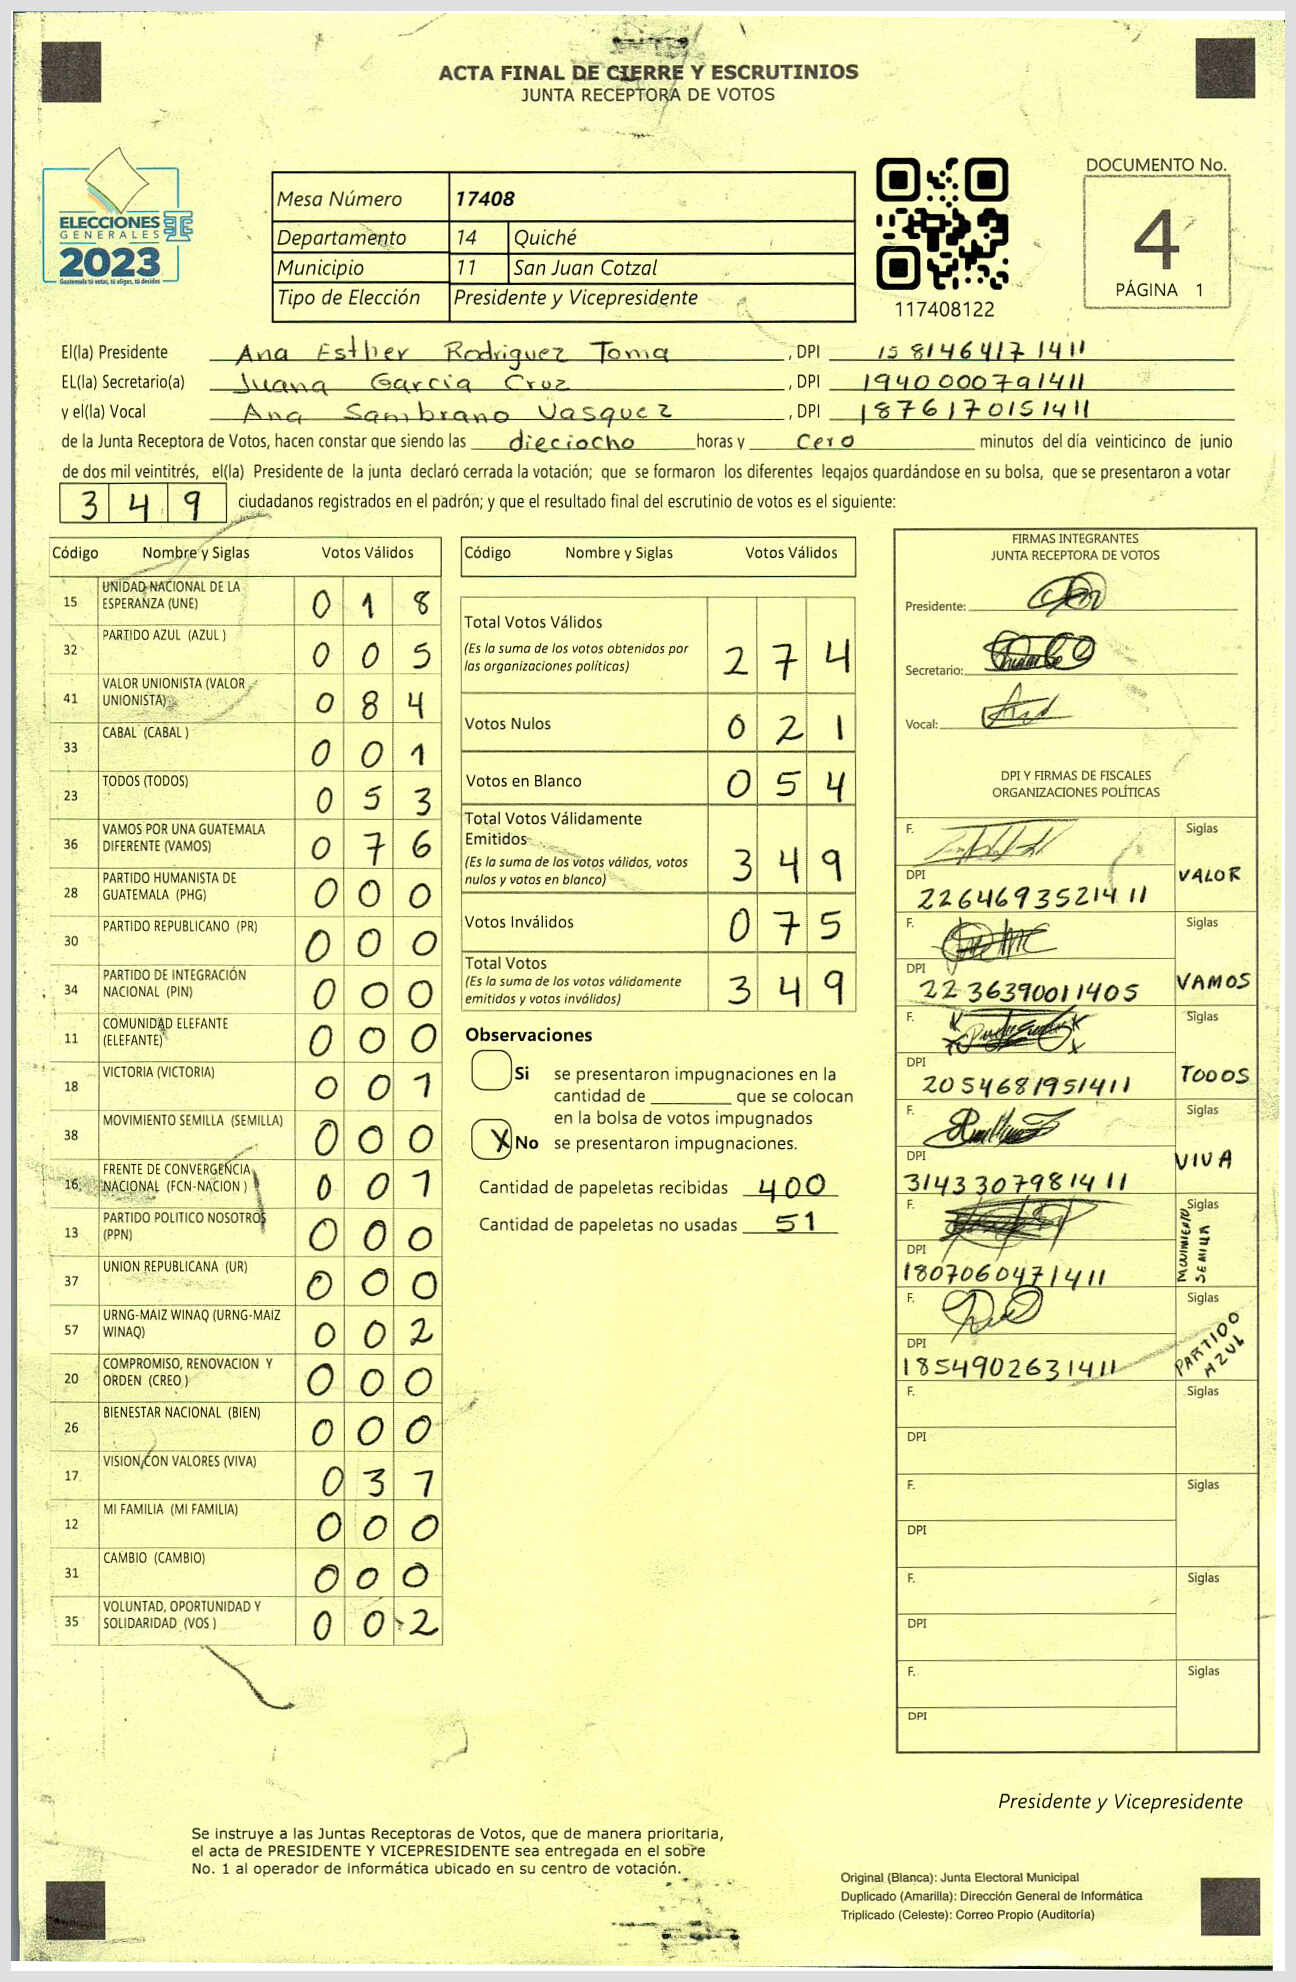 ACTA FINAL DE CIERRE Y ESCRUTINIOS
JUNTA RECEPTORA DE VOTOS
ELECCIONES
GENERALES
2023
Guatemala tú votas, tú eliges, tú decides
Mesa Número 17408
Departamento 14 Quiché
Municipio 11 San Juan Cotzal
Tipo de Elección Presidente y Vicepresidente
117408122
DOCUMENTO No.
4
PÁGINA 1
El(la) Presidente Ana Esther Rodriguez Toma , DPI 1581464171411
EL(la) Secretario(a) Juana Garcia Cruz , DPI 1940000791411
y el(la) Vocal Ana Sambrano Vasquez , DPI 1876170151411
de la Junta Receptora de Votos, hacen constar que siendo las dieciocho horas y cero minutos del día veinticinco de junio
de dos mil veintitrés, el(la) Presidente de la junta declaró cerrada la votación; que se formaron los diferentes legajos guardándose en su bolsa, que se presentaron a votar
349 ciudadanos registrados en el padrón; y que el resultado final del escrutinio de votos es el siguiente:
Código Nombre y Siglas Votos Válidos
15 UNIDAD NACIONAL DE LA ESPERANZA (UNE) 018
32 PARTIDO AZUL (AZUL ) 005
41 VALOR UNIONISTA (VALOR UNIONISTA) 084
33 CABAL (CABAL ) 001
23 TODOS (TODOS) 053
36 VAMOS POR UNA GUATEMALA DIFERENTE (VAMOS) 076
28 PARTIDO HUMANISTA DE GUATEMALA (PHG) 000
30 PARTIDO REPUBLICANO (PR) 000
34 PARTIDO DE INTEGRACIÓN NACIONAL (PIN) 000
11 COMUNIDAD ELEFANTE (ELEFANTE) 000
18 VICTORIA (VICTORIA) 001
38 MOVIMIENTO SEMILLA (SEMILLA) 000
16 FRENTE DE CONVERGENCIA NACIONAL (FCN-NACION ) 001
13 PARTIDO POLITICO NOSOTROS (PPN) 000
37 UNION REPUBLICANA (UR) 000
57 URNG-MAIZ WINAQ (URNG-MAIZ WINAQ) 002
20 COMPROMISO, RENOVACION Y ORDEN (CREO ) 000
26 BIENESTAR NACIONAL (BIEN) 000
17 VISION CON VALORES (VIVA) 037
12 MI FAMILIA (MI FAMILIA) 000
31 CAMBIO (CAMBIO) 000
35 VOLUNTAD, OPORTUNIDAD Y SOLIDARIDAD (VOS ) 002
Código Nombre y Siglas Votos Válidos
Total Votos Válidos 274
(Es la suma de los votos obtenidos por
las organizaciones políticas)
Votos Nulos 021
Votos en Blanco 054
Total Votos Válidamente
Emitidos 349
(Es la suma de los votos válidos, votos
nulos y votos en blanco)
Votos Inválidos 075
Total Votos 349
(Es la suma de los votos válidamente
emitidos y votos inválidos)
Observaciones
Si se presentaron impugnaciones en la
cantidad de ________ que se colocan
en la bolsa de votos impugnados
X No se presentaron impugnaciones.
Cantidad de papeletas recibidas 400
Cantidad de papeletas no usadas 51
FIRMAS INTEGRANTES
JUNTA RECEPTORA DE VOTOS
Presidente:
Secretario:
Vocal:
DPI Y FIRMAS DE FISCALES
ORGANIZACIONES POLÍTICAS
F. Siglas
DPI VALOR
2264693521411
F. Siglas
DPI VAMOS
2236390011405
F. Siglas
DPI TODOS
2054681951411
F. Siglas
DPI VIVA
3143307981411
F. Siglas
DPI MOVIMIENTO SEMILLA
1807060471411
F. Siglas
DPI PARTIDO AZUL
1854902631411
F. Siglas
DPI
F. Siglas
DPI
F. Siglas
DPI
F. Siglas
DPI
Presidente y Vicepresidente
Se instruye a las Juntas Receptoras de Votos, que de manera prioritaria,
el acta de PRESIDENTE Y VICEPRESIDENTE sea entregada en el sobre
No. 1 al operador de informática ubicado en su centro de votación.
Original (Blanca): Junta Electoral Municipal
Duplicado (Amarilla): Dirección General de Informática
Triplicado (Celeste): Correo Propio (Auditoría)